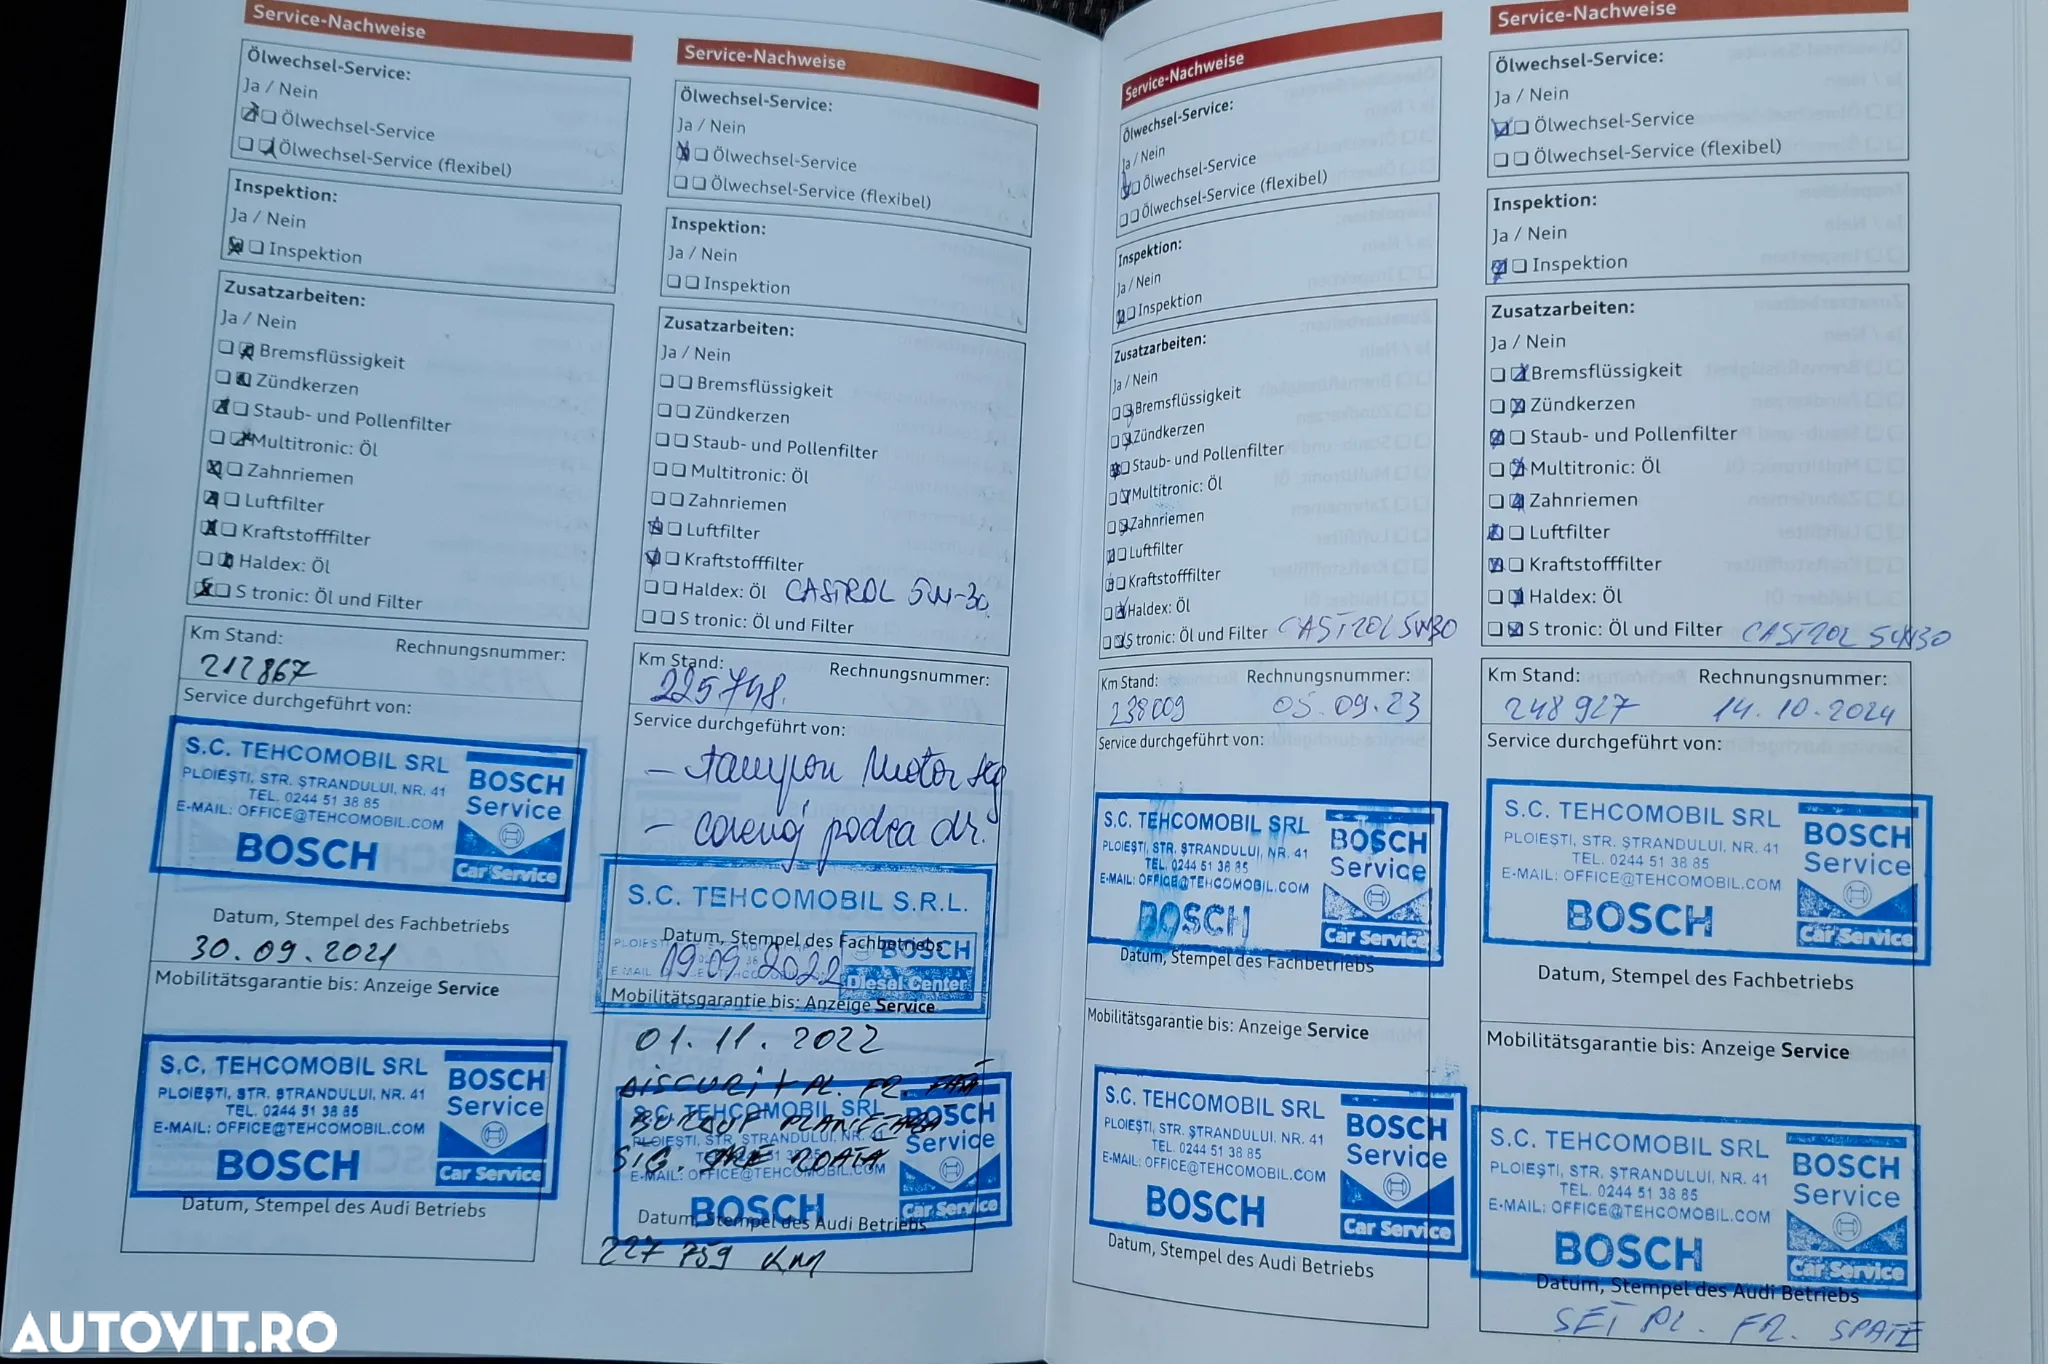 Service-Nachweise
Ölwechsel-Service:
Ja / Nein
Ölwechsel-Service
Ölwechsel-Service (flexibel)
Inspektion:
Ja / Nein
Inspektion
Zusatzarbeiten:
Ja / Nein
Bremsflüssigkeit
Zündkerzen
Staub- und Pollenfilter
Multitronic: Öl
Zahnriemen
Luftfilter
Kraftstofffilter
Haldex: Öl
S tronic: Öl und Filter
Km Stand: Rechnungsnummer:
212867
Service durchgeführt von:
S.C. TEHCOMOBIL SRL
PLOIEȘTI, STR. ȘTRANDULUI, NR. 41
TEL. 0244 51 38 85
E-MAIL: OFFICE@TEHCOMOBIL.COM
BOSCH
BOSCH
Service
Car Service
Datum, Stempel des Fachbetriebs
30.09.2021
Mobilitätsgarantie bis: Anzeige Service
S.C. TEHCOMOBIL SRL
PLOIEȘTI, STR. ȘTRANDULUI, NR. 41
TEL. 0244 51 38 85
E-MAIL: OFFICE@TEHCOMOBIL.COM
BOSCH
BOSCH
Service
Car Service
Datum, Stempel des Audi Betriebs
Service-Nachweise
Ölwechsel-Service:
Ja / Nein
Ölwechsel-Service
Ölwechsel-Service (flexibel)
Inspektion:
Ja / Nein
Inspektion
Zusatzarbeiten:
Ja / Nein
Bremsflüssigkeit
Zündkerzen
Staub- und Pollenfilter
Multitronic: Öl
Zahnriemen
Luftfilter
Kraftstofffilter
Haldex: Öl CASTROL 5W-30
S tronic: Öl und Filter
Km Stand: Rechnungsnummer:
225748.
Service durchgeführt von:
- tampon motor stg
- dr.
S.C. TEHCOMOBIL S.R.L.
Datum, Stempel des Fachbetriebs
BOSCH
19.09.2022
Diesel Center
Mobilitätsgarantie bis: Anzeige Service
01.11.2022
DISCURI + PL. FR. FATA
S.C. TEHCOMOBIL SRL
PLOIEȘTI, STR. ȘTRANDULUI, NR. 41
E-MAIL: OFFICE@TEHCOMOBIL.COM
BOSCH
BOSCH
Service
Car Service
Datum, Stempel des Audi Betriebs
227 759 KM
Service-Nachweise
Ölwechsel-Service:
Ja / Nein
Ölwechsel-Service
Ölwechsel-Service (flexibel)
Inspektion:
Ja / Nein
Inspektion
Zusatzarbeiten:
Ja / Nein
Bremsflüssigkeit
Zündkerzen
Staub- und Pollenfilter
Multitronic: Öl
Zahnriemen
Luftfilter
Kraftstofffilter
Haldex: Öl
S tronic: Öl und Filter CASTROL 5W30
Km Stand: Rechnungsnummer:
238009 05.09.23
Service durchgeführt von:
S.C. TEHCOMOBIL SRL
PLOIEȘTI, STR. ȘTRANDULUI, NR. 41
TEL. 0244 51 38 85
E-MAIL: OFFICE@TEHCOMOBIL.COM
BOSCH
BOSCH
Service
Car Service
Datum, Stempel des Fachbetriebs
Mobilitätsgarantie bis: Anzeige Service
S.C. TEHCOMOBIL SRL
PLOIEȘTI, STR. ȘTRANDULUI, NR. 41
TEL. 0244 51 38 85
E-MAIL: OFFICE@TEHCOMOBIL.COM
BOSCH
BOSCH
Service
Car Service
Datum, Stempel des Audi Betriebs
Service-Nachweise
Ölwechsel-Service:
Ja / Nein
Ölwechsel-Service
Ölwechsel-Service (flexibel)
Inspektion:
Ja / Nein
Inspektion
Zusatzarbeiten:
Ja / Nein
Bremsflüssigkeit
Zündkerzen
Staub- und Pollenfilter
Multitronic: Öl
Zahnriemen
Luftfilter
Kraftstofffilter
Haldex: Öl
S tronic: Öl und Filter CASTROL 5W30
Km Stand: Rechnungsnummer:
248927 14.10.2024
Service durchgeführt von:
S.C. TEHCOMOBIL SRL
PLOIEȘTI, STR. ȘTRANDULUI, NR. 41
TEL. 0244 51 38 85
E-MAIL: OFFICE@TEHCOMOBIL.COM
BOSCH
BOSCH
Service
Car Service
Datum, Stempel des Fachbetriebs
Mobilitätsgarantie bis: Anzeige Service
S.C. TEHCOMOBIL SRL
PLOIEȘTI, STR. ȘTRANDULUI, NR. 41
TEL. 0244 51 38 85
E-MAIL: OFFICE@TEHCOMOBIL.COM
BOSCH
BOSCH
Service
Car Service
Datum, Stempel des Audi Betriebs
SET PL. FR. SPATE
AUTOVIT.RO